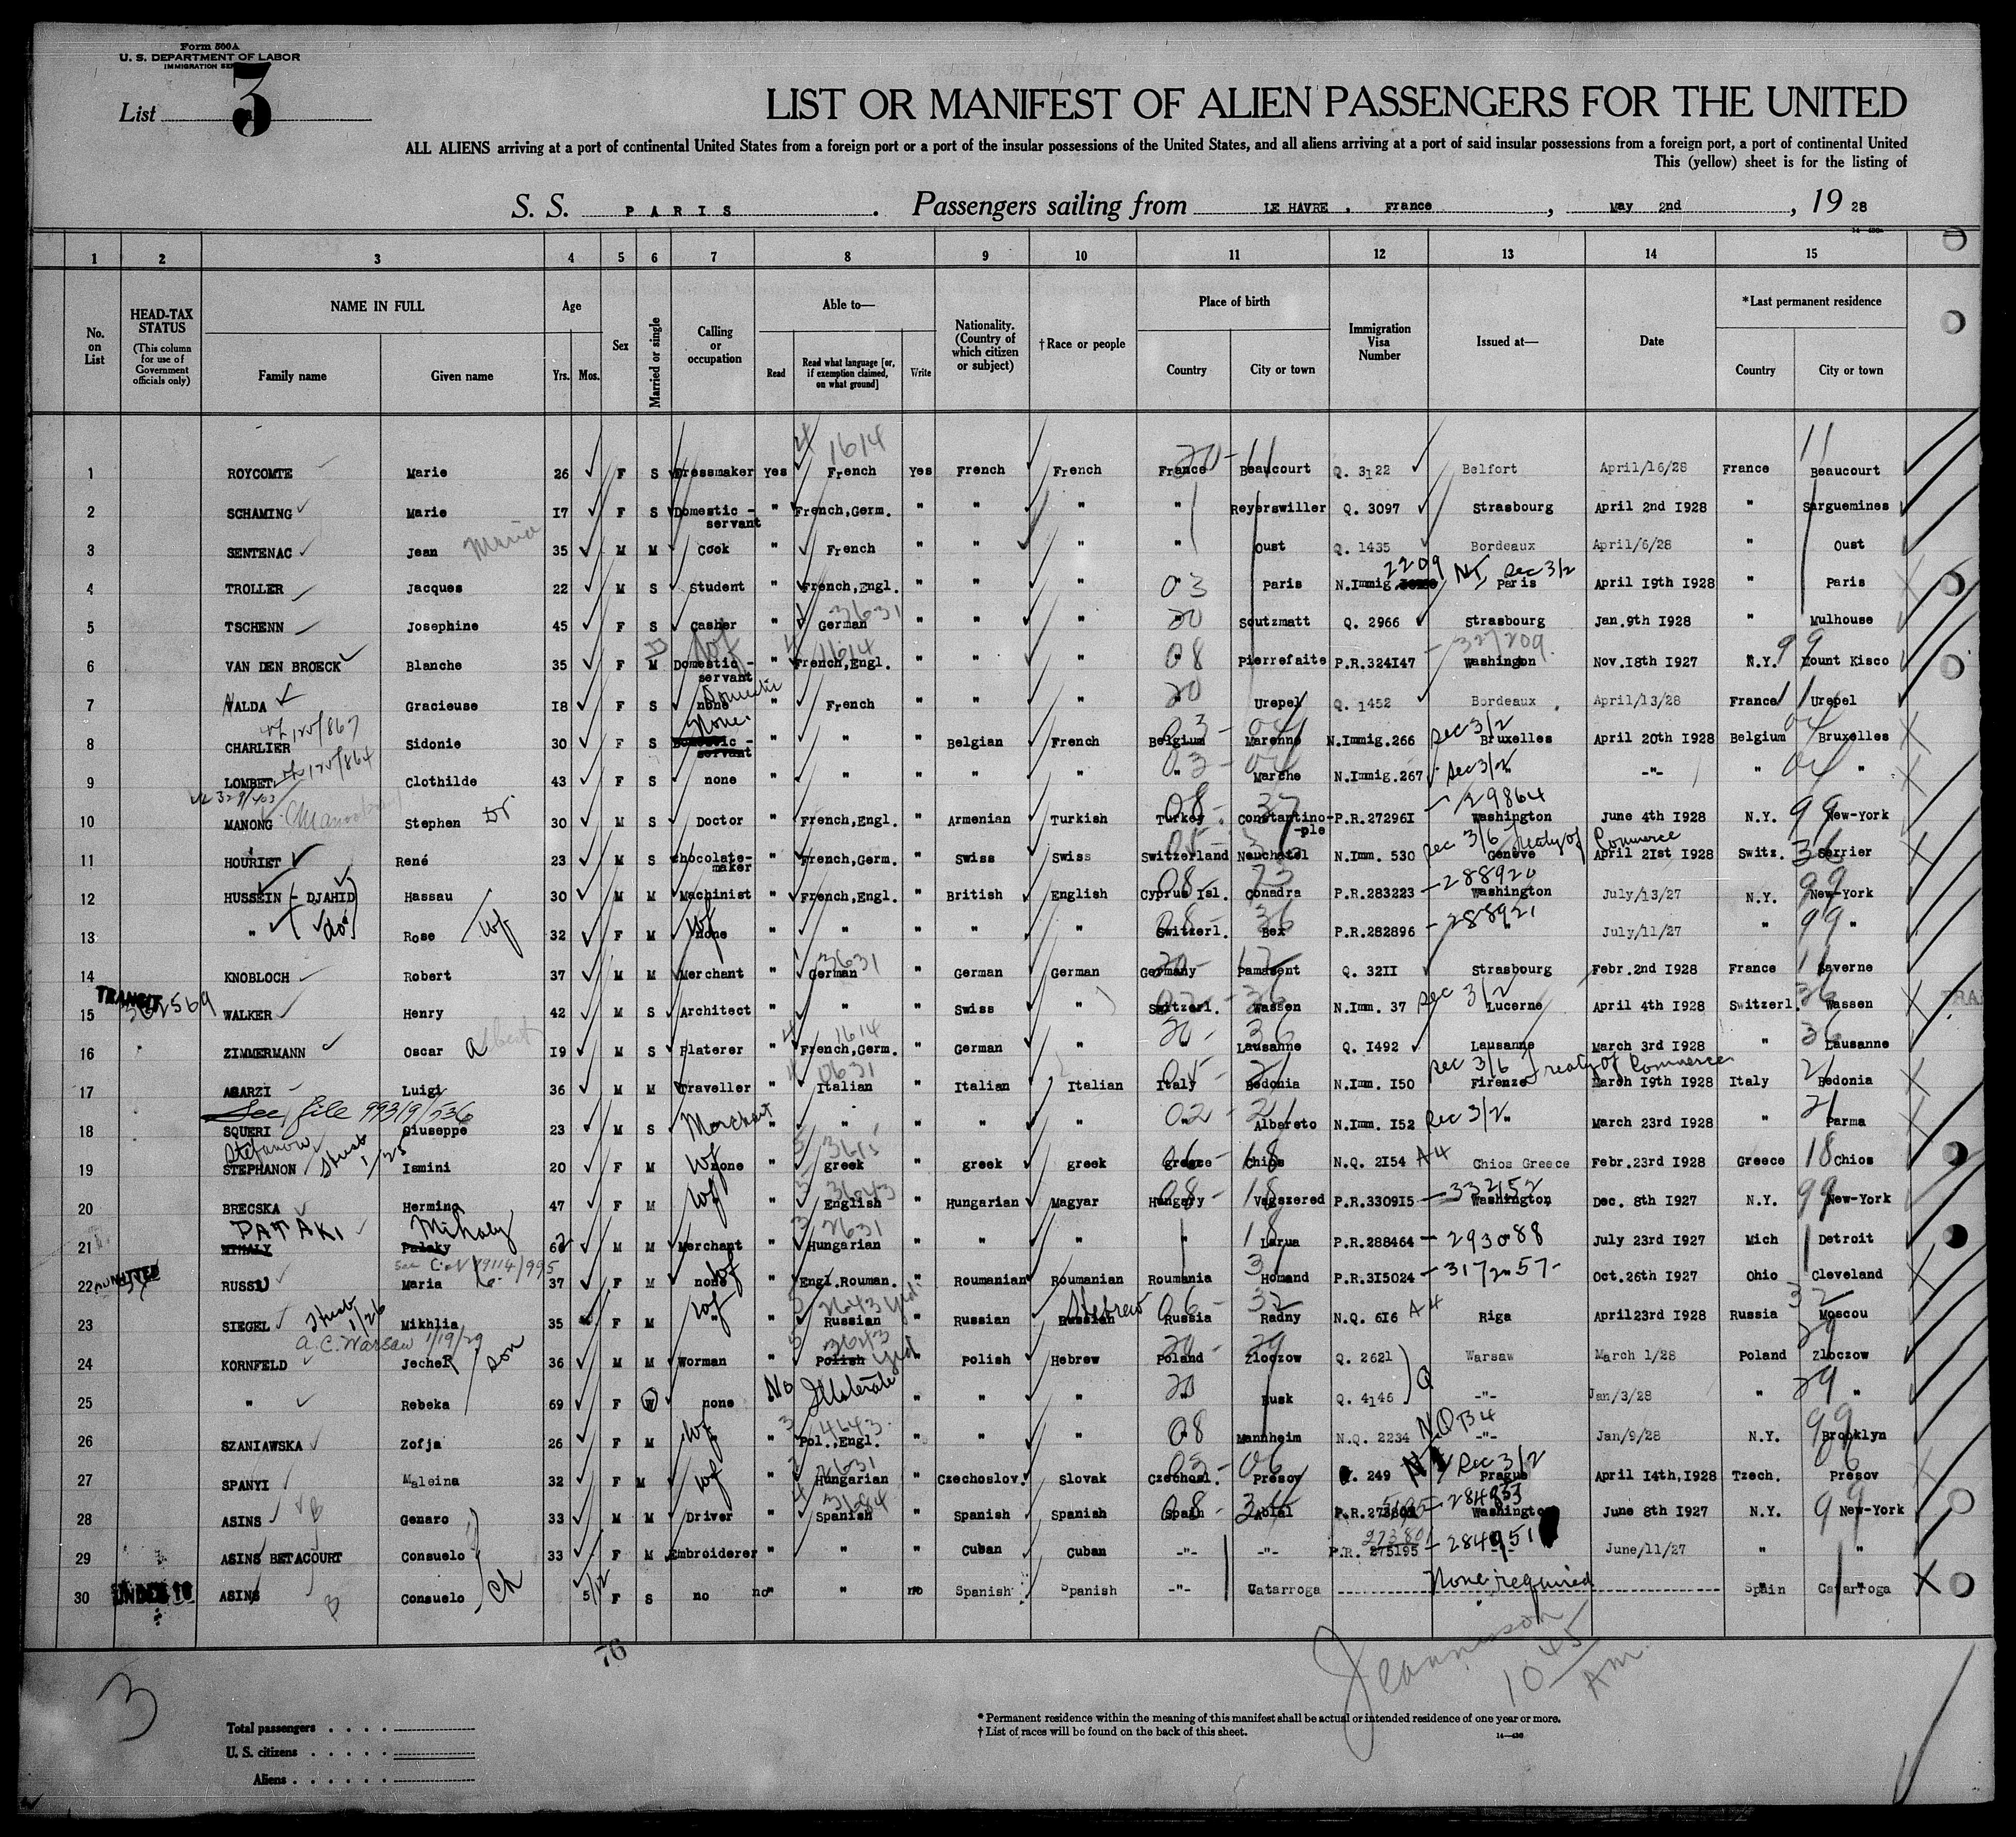 Form 500A
U. S. DEPARTMENT OF LABOR
IMMIGRATION
List 3
LIST OR MANIFEST OF ALIEN PASSENGERS FOR THE UNITED
ALL ALIENS arriving at a port of continental United States from a foreign port or a port of the insular possessions of the United States, and all aliens arriving at a port of said insular possessions from a foreign port, a port of continental United
This (yellow) sheet is for the listing of
S. S. PARIS . Passengers sailing from LE HAVRE , France , May 2nd , 19 28
1 2 3 4 5 6 7 8 9 10 11 12 13 14 15
No. on List
HEAD-TAX STATUS (This column for use of Government officials only)
NAME IN FULL
Family name Given name
Age
Yrs. Mos.
Sex
Married or single
Calling or occupation
Able to—
Read Read what language [or, if exemption claimed, on what ground] Write
Nationality. (Country of which citizen or subject)
†Race or people
Place of birth
Country City or town
Immigration Visa Number
Issued at—
Date
*Last permanent residence
Country City or town
4 1614 20-11 11
1 ROYCOMTE Marie 26 F S Dressmaker Yes French Yes French French France Beaucourt Q. 3122 Belfort April/16/28 France Beaucourt
2 SCHAMING Marie 17 F S Domestic - servant " French,Germ. " " " " Reyerswiller Q. 3097 Strasbourg April 2nd 1928 " Sarguemines
3 SENTENAC Jean Maria 35 M M Cook " French " " " " Oust Q. 1435 Bordeaux April/6/28 " Oust
4 TROLLER Jacques 22 M S Student " French,Engl. " " " " 03 Paris N.Immig. 2209 NI Sec 3/2 Paris April 19th 1928 " Paris
5 TSCHENN Josephine 45 F S Casher " German 3631 " " " " 20 Soutzmatt Q. 2966 Strasbourg Jan.9th 1928 " Mulhouse
6 VAN DEN BROECK Blanche 35 F M D Domestic - servant wf " French,Engl. 4 1614 " " " " 08 Pierrefaite P.R.324147 - 327209 Washington Nov.18th 1927 N.Y. 99 Mount Kisco
7 VALDA Gracieuse 18 F S none Domestic " French " " " " 20 Urepel Q. 1452 Bordeaux . April/13/28 France 11 Urepel
8 CHARLIER Sidonie 30 F S Domestic - servant None. " " " Belgian French Belgium 03 - 04 Marenne N.Immig.266 Sec 3/2 Bruxelles April 20th 1928 Belgium 04 Bruxelles
9 LOMBET Clothilde 43 F S none " " " " " " 03 - 04 Marche N.Immig.267 Sec 3/2 " -"- " 04 "
10 MANONG Stephen Dr 30 M S Doctor " French,Engl. " Armenian Turkish Turkey 08 - 37 Constantino-ple P.R.272961 - 29864 Washington June 4th 1928 N.Y. 99 New-York
11 HOURIET René 23 M S Chocolate-maker " French,Germ. " Swiss Swiss Switzerland 05 Neuchatel N.Imm. 530 Sec 3/6 Treaty of Commerce Genève April 21st 1928 Switz. 36 Serrier
12 HUSSEIN (- DJAHID) Hassau 30 M M Machinist " French,Engl. " British English Cyprus Isl. 08 - Conadra P.R.283223 - 288920 Washington July/13/27 N.Y. 99 New-York
13 " ( do ) Rose wf 32 F M none wf " " " " " Switzerl. 08 - 36 Bex P.R.282896 - 288921 " July/11/27 " 99 "
14 KNOBLOCH Robert 37 M M Merchant " German 3631 " German German Germany 20 - 17 Pamasent Q. 3211 Strasbourg Febr.2nd 1928 France 11 Saverne
TRANSIT 362569
15 WALKER Henry 42 M S Architect " " " Swiss " Switzerl. 02 - 36 Wassen N.Imm. 37 Sec 3/2 Lucerne April 4th 1928 Switzerl. 36 Wassen
16 ZIMMERMANN Oscar Albert 19 M S Platerer " French,Germ. 4 1614 " German " " 20 - 36 Lausanne Q. 1492 Lausanne March 3rd 1928 " 36 Lausanne
17 AGARZI Luigi 36 M M Traveller " Italian 0631 " Italian Italian Italy 05 - 21 Bedonia N.Imm. 150 Sec 3/6 Treaty of Commerce Firenze March 19th 1928 Italy 21 Bedonia
See file 99319/536
18 SQUERI Giuseppe 23 M S Merchant " " " " " " 02 - 21 Albereto N.Imm. 152 Sec 3/2 " March 23rd 1928 " 21 Parma
Stefanow Husb 1/25
19 STEPHANON Ismini 20 F M none wf " greek 3615 " greek greek greece 06 - 18 Chios N.Q. 2154 A4 Chios Greece Febr.23rd 1928 Greece 18 Chios
20 BRECSKA Hermina 47 F M wf " English 3643 " Hungarian Magyar Hungary 08 - 18 Vagszered P.R.330915 - 332152 Washington Dec. 8th 1927 N.Y. 99 New-York
PATAKI Mihaly
21 MIHALY Palaky M M Merchant " Hungarian 3 2631 " " " " 18 Larua P.R.288464 - 293088 " July 23rd 1927 Mich Detroit
ADMITTED
22 RUSSU Maria 37 F M none wf " Engl.Rouman. " Roumanian Roumanian Roumania 31 Homand P.R.315024 - 317257 " Oct.26th 1927 Ohio Cleveland
23 SIEGEL Husb 1/26 Mikhlia 35 F M " wf " Russian 2643 Yid. " Russian Russian Hebrew Russia 06 - 32 Radny N.Q. 616 A4 Riga April23rd 1928 Russia 32 Moscou
a.C. Warsaw 1/19/29
24 KORNFELD Jechel son 36 M M Worman " Polish 3643 Yid " Polish Hebrew Poland 20 29 Zloczow Q. 2621 Warsaw March 1/28 Poland 29 Zloczow
25 " Rebeka 69 F W none No Illiterate " " " " 20 Busk Q. 4146 Q -"- Jan/3/28 " 29 "
26 SZANIAWSKA Zofja 26 F M " wf " Pol.,Engl. 3 4643 " " " " 08 Mannheim N.Q. 2234 NQB4 -"- Jan/9/28 N.Y. 99 Brooklyn
27 SPANYI Maleina 32 F M " wf " Hungarian 2631 " Czechoslov. Slovak Czechosl. 03 - 06 Presov . 249 NI Sec 3/2 Prague April 14th,1928 Tzech. 6 Presov
28 ASINS Genaro 33 M M Driver " Spanish 4 3184 " Spanish Spanish Spain 08 - 34 Abial P.R. 284953 Washington June 8th 1927 N.Y. 99 New-York
29 ASINS BETACOURT Consuelo 33 F M Embroiderer " " " Cuban Cuban -"- -"- P.R. 275195 273801 - 284951 June/11/27 " "
30 UNDER 16 ASINS Consuelo Ch 5/12 F S no no " " no Spanish Spanish -"- Catarroga None required Spain Catarroga
76
Jeannesson
10 45
AM.
3
Total passengers . . . .
U. S. citizens . . . . .
Aliens . . . . . .
* Permanent residence within the meaning of this manifest shall be actual or intended residence of one year or more.
† List of races will be found on the back of this sheet.